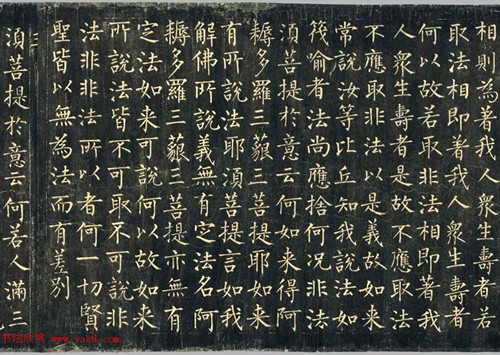 相則為著我人眾生壽者若
取法相即著我人眾生壽者
何以故若取非法相即著我
人眾生壽者是故不應取法
不應取非法以是義故如來
常說汝等比丘知我說法如
筏喻者法尚應捨何況非法
須菩提於意云何如來得阿
耨多羅三藐三菩提耶如來
有所說法耶須菩提言如我
解佛所說義無有定法名阿
耨多羅三藐三菩提亦無有
定法如來可說何以故如來
所說法皆不可取不可說非
法非非法所以者何一切賢
聖皆以無為法而有差別
三
須菩提於意云何若人滿三
书法欣赏
www.yac8.com